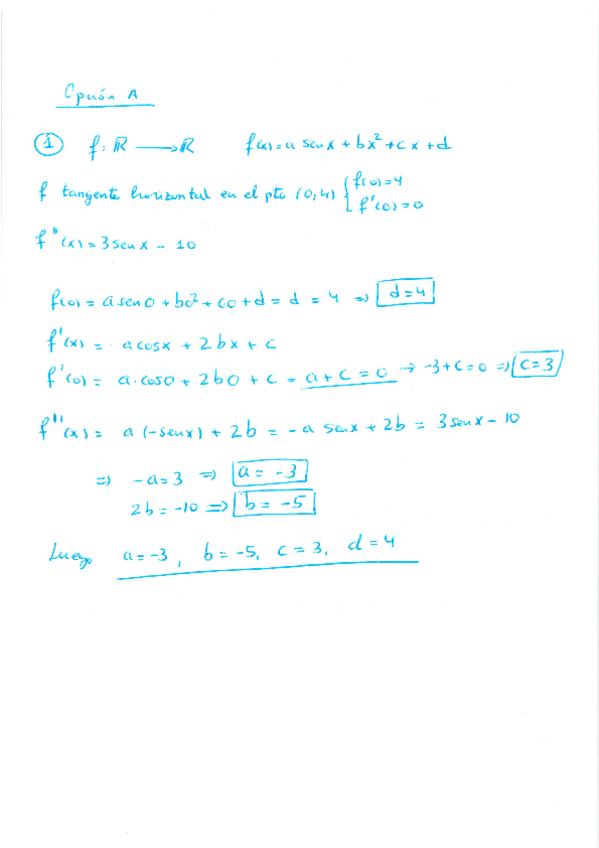 Opción A
① f: ℝ ⟶ ℝ f(x)=a sen x + bx² + cx + d
f tangente horizontal en el pto (0,4) { f(0)=4
f'(0)=0
f''(x)=3senx - 10
f(0) = a sen 0 + b0² + c0 + d = d = 4 ⇒ d=4
f'(x) = a cosx + 2bx + c
f'(0) = a·cos0 + 2b0 + c = a+c=0 → -3+c=0 ⇒ c=3
f''(x) = a(-senx) + 2b = -a senx + 2b = 3senx - 10
⇒ -a=3 ⇒ a=-3
2b=-10 ⇒ b=-5
Luego a=-3, b=-5, c=3, d=4